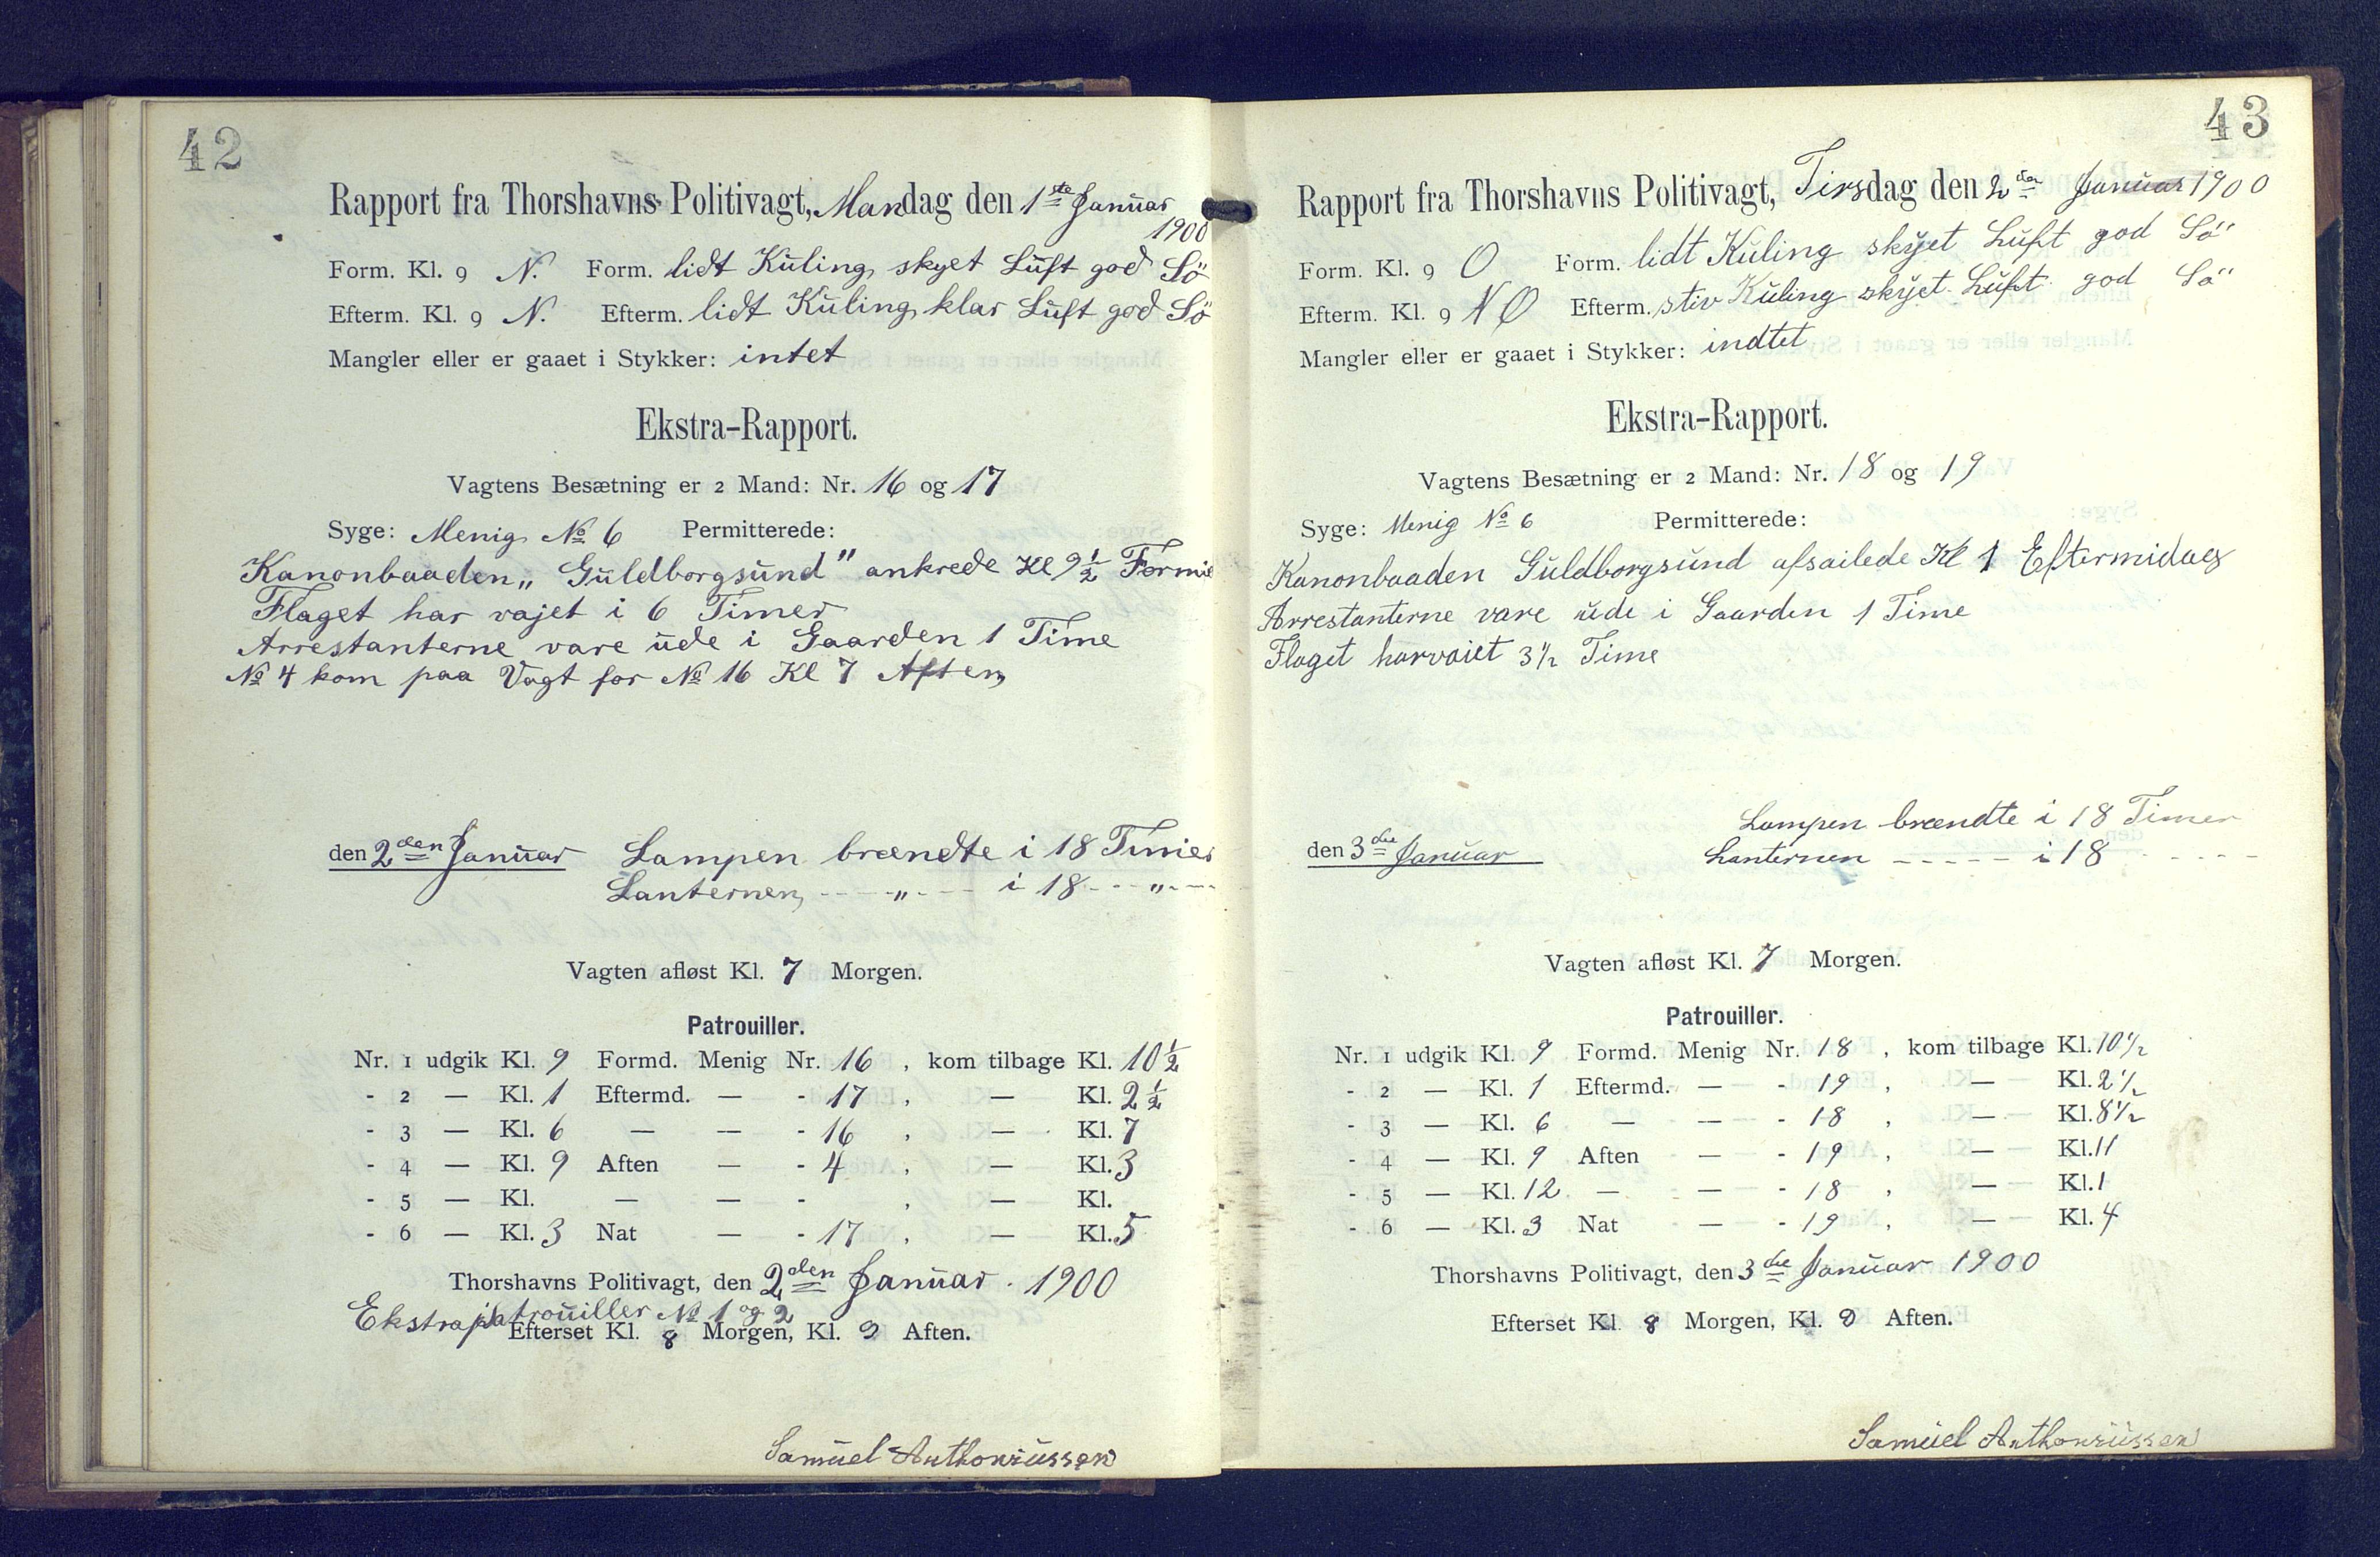 42
Rapport fra Thorshavns Politivagt, Mandag den 1ste Januar
1900
Form. Kl. 9 N. Form. lidt Kuling skyet Luft god Sö
Efterm. Kl. 9 N. Efterm. lidt Kuling klar Luft god Sö
Mangler eller er gaaet i Stykker: intet
Ekstra-Rapport.
Vagtens Besætning er 2 Mand: Nr. 16 og 17
Syge: Menig No 6 Permitterede:
Kanonbaaden „Guldborgsund" ankrede Kl 9½ Formid
Flaget har vajet i 6 Timer
Arrestanterne vare ude i Gaarden 1 Time
No 4 kom paa Vagt for No 16 Kl 7 Aften
den 2den Januar Lampen brændte i 18 Timer
Lanternen - - - „ - - - i 18 - - - „ - - -
Vagten afløst Kl. 7 Morgen.
Patrouiller.
Nr. 1 udgik Kl. 9 Formd. Menig Nr. 16 , kom tilbage Kl. 10½
- 2 — Kl. 1 Eftermd. — - 17 , — Kl. 2½
- 3 — Kl. 6 — — - 16 , — Kl. 7
- 4 — Kl. 9 Aften — - 4 , — Kl. 3
- 5 — Kl. — — - , — Kl.
- 6 — Kl. 3 Nat — - 17 , — Kl. 5
Thorshavns Politivagt, den 2den Januar. 1900
Ekstrapatrouiller No 1 og 2
Efterset Kl. 8 Morgen, Kl. 9 Aften.
Samuel Anthoniussen
43
Rapport fra Thorshavns Politivagt, Tirsdag den 2den Januar 1900
Form. Kl. 9 O Form. lidt Kuling skyet Luft god Sö
Efterm. Kl. 9 NØ Efterm. stiv Kuling skyet Luft god Sö
Mangler eller er gaaet i Stykker: indtet
Ekstra-Rapport.
Vagtens Besætning er 2 Mand: Nr. 18 og 19
Syge: Menig No 6 Permitterede:
Kanonbaaden Guldborgsund afsailede Kl 1 Eftermidag
Arrestanterne vare ude i Gaarden 1 Time
Flaget harvaiet 3½ Time
Lampen brændte i 18 Timer
den 3die Januar Lanternen - - - - - i 18 - - - -
Vagten afløst Kl. 7 Morgen.
Patrouiller.
Nr. 1 udgik Kl. 9 Formd. Menig Nr. 18 , kom tilbage Kl. 10½
- 2 — Kl. 1 Eftermd. — - 19 , — Kl. 2½
- 3 — Kl. 6 — — - 18 , — Kl. 8½
- 4 — Kl. 9 Aften — - 19 , — Kl. 11
- 5 — Kl. 12 — — - 18 , — Kl. 1
- 6 — Kl. 3 Nat — - 19 , — Kl. 4
Thorshavns Politivagt, den 3die Januar 1900
Efterset Kl. 8 Morgen, Kl. 9 Aften.
Samuel Anthoniussen